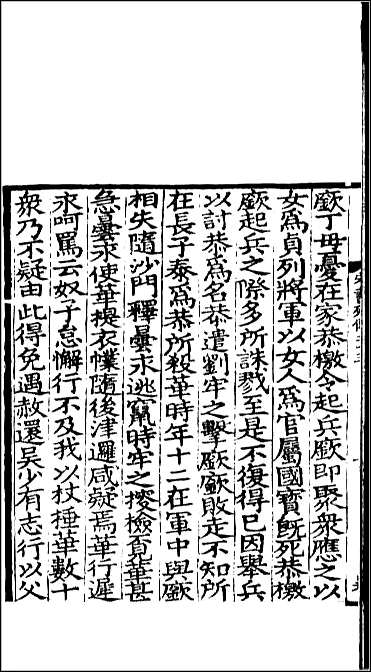 廞丁母憂在家恭檄令起兵廞即聚衆應之以
女爲貞列將軍以女人爲官屬國寶旣死恭檄
廞起兵之際多所誅戮至是不復得已因舉兵
以討恭爲名恭遣劉牢之擊廞廞敗走不知所
在長子泰爲恭所殺華時年十二在軍中與廞
相失隨沙門釋曇永逃竄時牢之搜檢覔華甚
急曇永使華提衣幞隨後津邏咸疑焉華行遲
永呵罵云奴子怠懈行不及我以杖捶華數十
衆乃不疑由此得免遇赦還吳少有志行以父